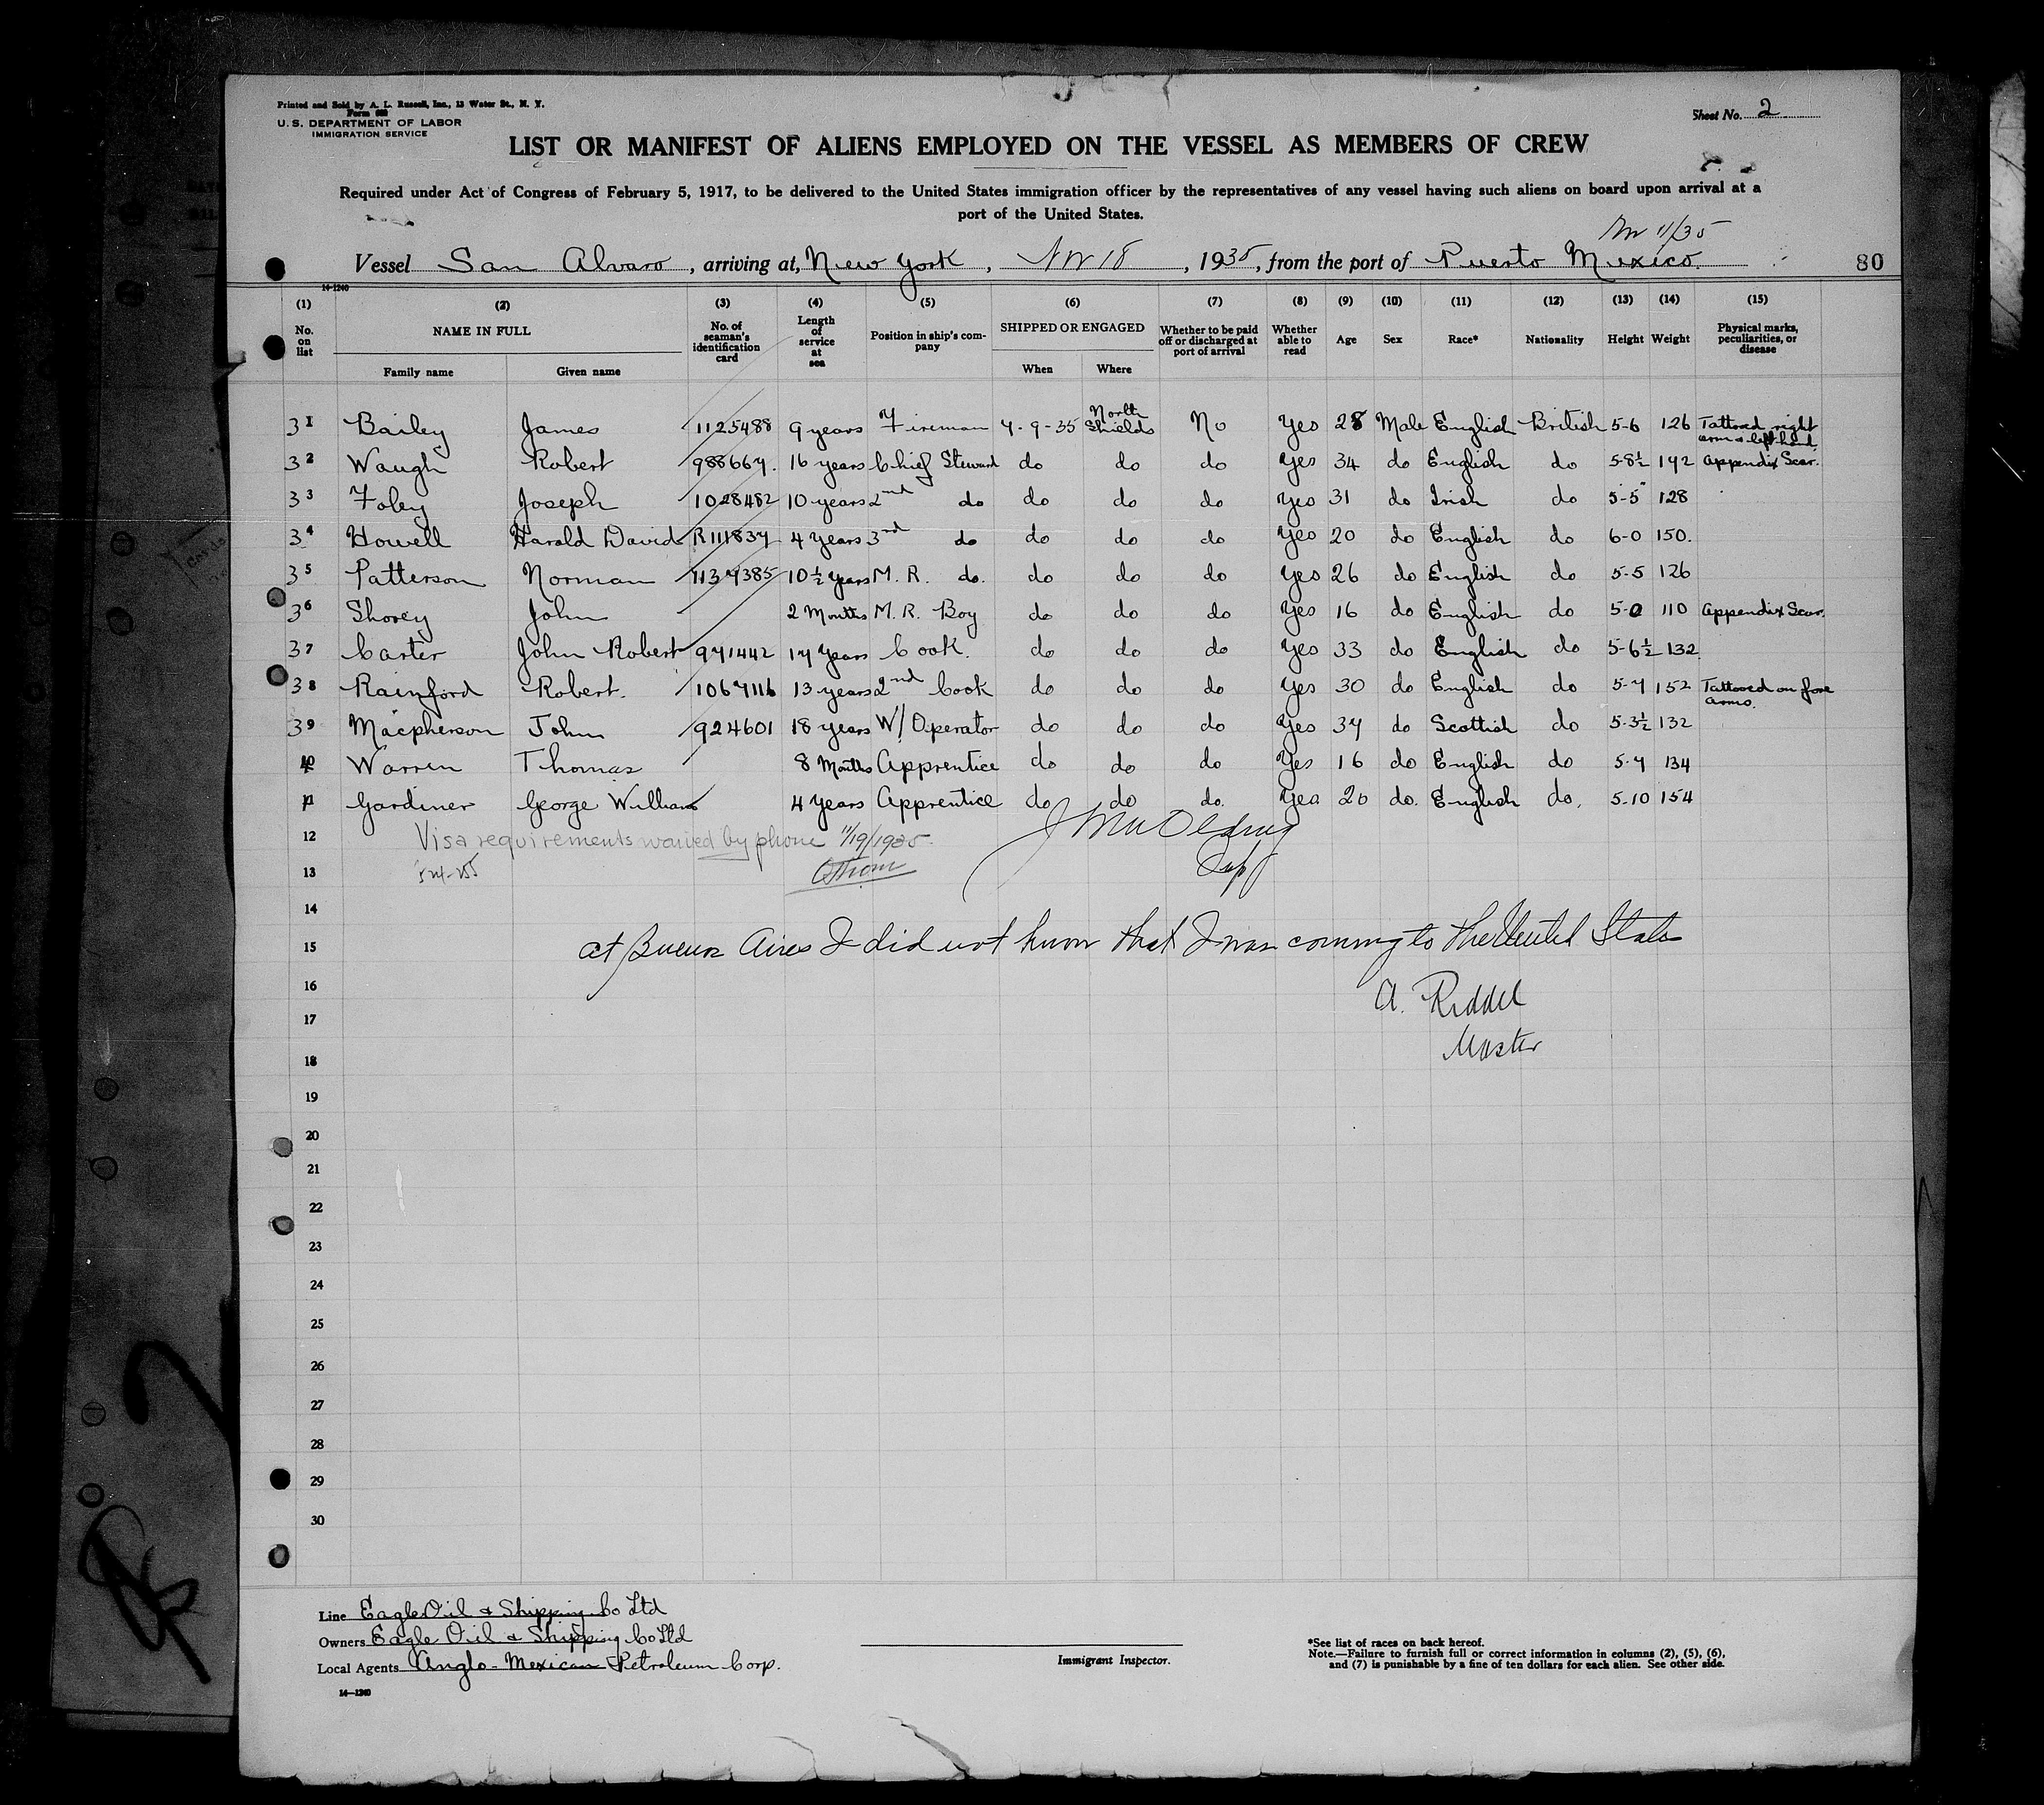 Printed and Sold by A. L. Russell, Inc., 13 Water St., N. Y.
Form 680
U. S. DEPARTMENT OF LABOR
IMMIGRATION SERVICE
Sheet No. 2
LIST OR MANIFEST OF ALIENS EMPLOYED ON THE VESSEL AS MEMBERS OF CREW
Required under Act of Congress of February 5, 1917, to be delivered to the United States immigration officer by the representatives of any vessel having such aliens on board upon arrival at a
port of the United States.
11/35
Vessel San Alvaro, arriving at, New York, Nov 18, 1935, from the port of Puerto Mexico. 80
14-1240
(1) (2) (3) (4) (5) (6) (7) (8) (9) (10) (11) (12) (13) (14) (15)
No. on list NAME IN FULL No. of seaman's identification card Length of service at sea Position in ship's company SHIPPED OR ENGAGED Whether to be paid off or discharged at port of arrival Whether able to read Age Sex Race* Nationality Height Weight Physical marks, peculiarities, or disease
Family name Given name When Where
31 Bailey James 1125488 9 years Fireman 7-9-35 North Shields No Yes 28 Male English British 5-6 126 Tattooed right arm & left hand
32 Waugh Robert 988667. 16 years Chief Steward do do do Yes 34 do English do 5-8½ 142 Appendix Scar.
33 Foley Joseph 1028482 10 years 2nd do do do do Yes 31 do Irish do 5-5 128
34 Howell Harold David R111837 4 years 3rd do do do do Yes 20 do English do 6-0 150.
35 Patterson Norman 1137385 10½ years M. R. do. do do do Yes 26 do English do 5-5 126
36 Shovey John 2 Months M. R. Boy do do do Yes 16 do English do 5-0 110 Appendix Scar.
37 Carter John Robert 971442 17 years Cook. do do do Yes 33 do English do 5-6½ 132.
38 Rainford Robert. 1067116 13 years 2nd Cook do do do Yes 30 do English do 5-7 152 Tattooed on fore arms.
39 Macpherson John 924601 18 years W/Operator do do do Yes 37 do Scottish do 5-3½ 132
40 Warren Thomas 8 Months Apprentice do do do Yes 16 do English do 5-7 134
11 Gardiner George William 4 years Apprentice do do do. Yes 20 do. English do. 5-10 154
12 Visa requirements waived by phone 11/19/1935.
13
14
15 at Buenos Aires I did not know that I was coming to the United States
16 A. Riddel
17
Master
18
19
20
21
22
23
24
25
26
27
28
29
30
Line Eagle Oil & Shipping Co Ltd
Owners Eagle Oil & Shipping Co Ltd
Local Agents Anglo-Mexican Petroleum Corp.
14—1240
Immigrant Inspector.
*See list of races on back hereof.
Note.—Failure to furnish full or correct information in columns (2), (5), (6),
and (7) is punishable by a fine of ten dollars for each alien. See other side.